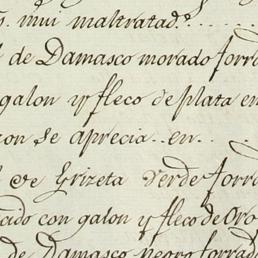 mui maltratad.º
de Damasco morado forra
galon y fleco de plata en
se aprecia.. en..
de Grizeta verde forra
cado con galon y fleco de Oro
de Damasco negro forrad